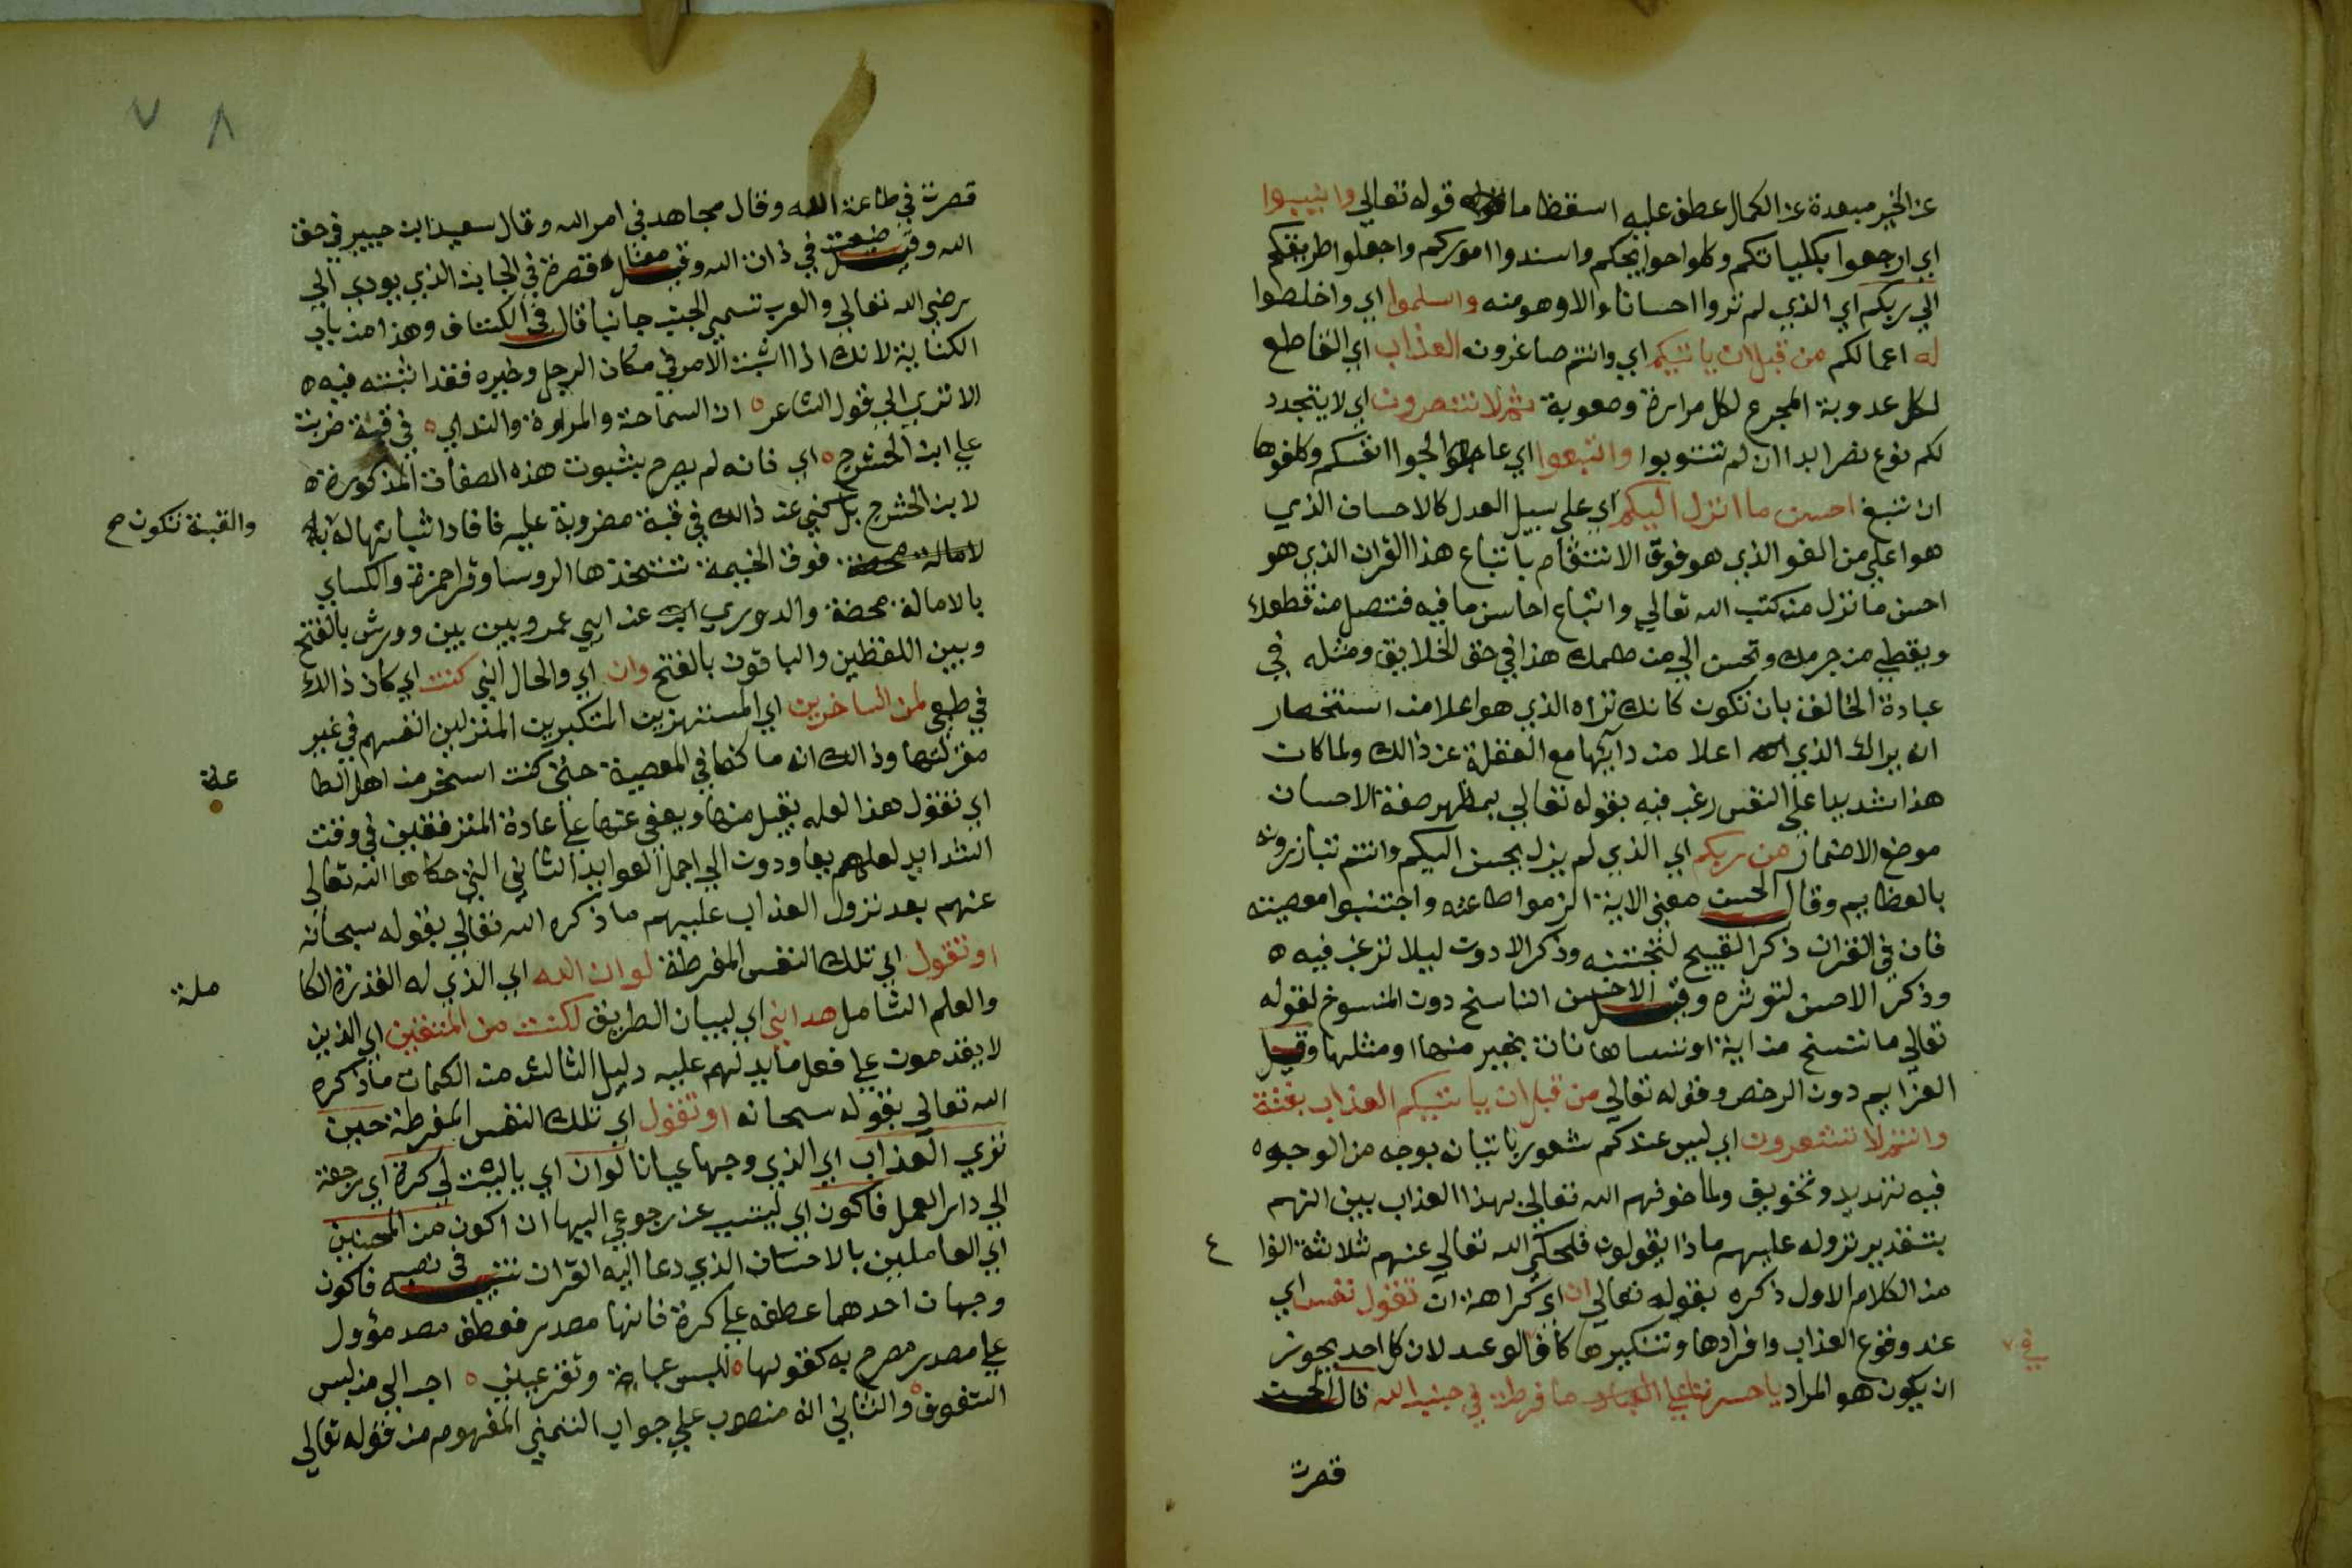 عن الخير مبعدة عن الكمال عطف عليه اسقظا ما قوله تعالي وانيبوا
اي ارجعوا بكلياتكم وكلوا حوايجكم واسندوا اموركم واجعلوا طريقكم
الي ربكم اي الذي لم تروا احسانا الا وهو منه واسلموا اي واخلصوا
له اعمالكم من قبل ان ياتيكم اي وانتم صاغرون العذاب اي القاطع
لكل عدوبة المجرع لكل مرارة وصعوبة ثم لا تنصرون اي لا يتجدد
لكم نوع نصر ابدا ان لم تتوبوا واتبعوا اي عالجوا انفسكم وكلفوها
ان تتبع احسن ما انزل اليكم اي علي سبيل العدل كالاحسان الذي
هو اعلي من العفو الذي هو فوق الانتقام باتباع هذا القران الذي هو
احسن ما نزل من كتب الله تعالي واتباع احاسن ما فيه فتصل من قطعك
ويقطي من حرمك وتحسن الي من ظلمك هذا في حق الخلايق ومثله في
عبادة الخالق بان تكون كانك تراه الذي هو اعلا من استحضار
انه يراك الذي اعلا من دايها مع الغفلة عن ذالك ولما كان
هذا شديدا علي النفس رغب فيه بقوله تعالي بمظهر صفة الاحسان
موضع الاضمار من ربكم اي الذي لم يزل يحسن اليكم وانتم تبارزونه
بالعظايم وقال الحسن معني الاية الزموا طاعته واجتنبوا معصيته
فان في القران ذكر القبيح لتجتنبه وذكر الادون ليلا ترغب فيه ه
وذكر الاحسن لتوثره وقيل الاحسن الناسخ دون المنسوخ لقوله
تعالي ما ننسخ من اية او ننساها نات بخير منها او مثلها وقيل
العزايم دون الرخص وقوله تعالي من قبل ان ياتيكم العذاب بغتة
وانتم لا تشعرون اي ليس عندكم شعور باتيانه بوجه من الوجوه
فيه تهديد وتخويف ولما خوفهم الله تعالي بهذا العذاب بين انهم
بتقدير نزوله عليهم ماذا يقولون فحكي الله تعالي عنهم ثلاثة انوا
ع
من الكلام الاول ذكره بقوله تعالي ان اي كراهة ان تقول نفس اي
عند وقوع العذاب وافرادها وتنكيرها كاف الوعيد لان كل احد يجوز
ان يكون هو المراد يا حسرتا علي ما فرطت في جنب الله قال الحسن
قصرت
٧ ٨
قصرت في طاعة الله وقال مجاهد في امر الله وقال سعيد ابن جبير في حق
الله وقيل ضيعت في ذات الله وقيل معناه قصرت في الجانب الذي يودي الي
رضي الله تعالي والعرب تسمي الجنب جانبا قال في الكشاف وهذا من باب
الكناية لانك اذا اثبت الامر في مكان الرجل وحيزه فقد اثبته فيه ه
الا تري الي قول الشاعر ه ان السماحة والمروة والنداي ه في قبة ضربت
علي ابن الحشرج ه اي فانه لم يصرح بثبوت هذه الصفات المذكورة ه
لابن الحشرج بل كني عن ذالك في قبة مضروبة عليه فافاد اثباتها له
والقبة تكون صح
لامالة محضة فوق الخيمة تتخذها الروسا وقرا حمزة والكساي
بالامالة محضة والدوري عن ابي عمرو بين بين وورش بالفتح
وبين اللفظين والباقون بالفتح وان اي والحال اني كنت اي كان ذالك
في طبعي لمن الساخرين اي المستهزين المتكبرين المنزلين انفسهم في غير
منزلتها وذالك انه ما كفاني المعصية حتي كنت اسخر من اهل الطا
عة
اي تقول هذا لعله يقبل منها ويعفي عنها علي عادة المترفقين في وقت
الشدايد لعلهم يعاودون الي اجمل العوايد الثاني التي حكاها الله تعالي
عنهم بعد نزول العذاب عليهم ما ذكره الله تعالي بقوله سبحانه
او تقول اي تلك النفس المفرطة لو ان الله اي الذي له القدرة الكا
ملة
والعلم الشامل هداني اي لبيان الطريق لكنت من المتقين اي الذين
لا يقدمون علي فعل ما يدلهم عليه دليل الثالث من الكلمات ما ذكره
الله تعالي بقوله سبحانه او تقول اي تلك النفس المفرطة حين
تري العذاب اي الذي وجهها عيانا لو ان اي ياليت لي كرة اي رجعة
الي دار العمل فاكون اي ليتسبب عن رجوعي اليها ان اكون من المحسنين
اي العاملين بالاحسان الذي دعا اليه القران تنبيه في نصب فاكون
وجهان احدهما عطفه علي كرة فانها مصدر فعطف مصدر مؤول
علي مصدر مصرح به كقولها ه للبس عباءة وتقر عيني ه احب الي من لبس
الشفوف ه والثاني انه منصوب علي جواب التمني المفهوم من قوله تعالي